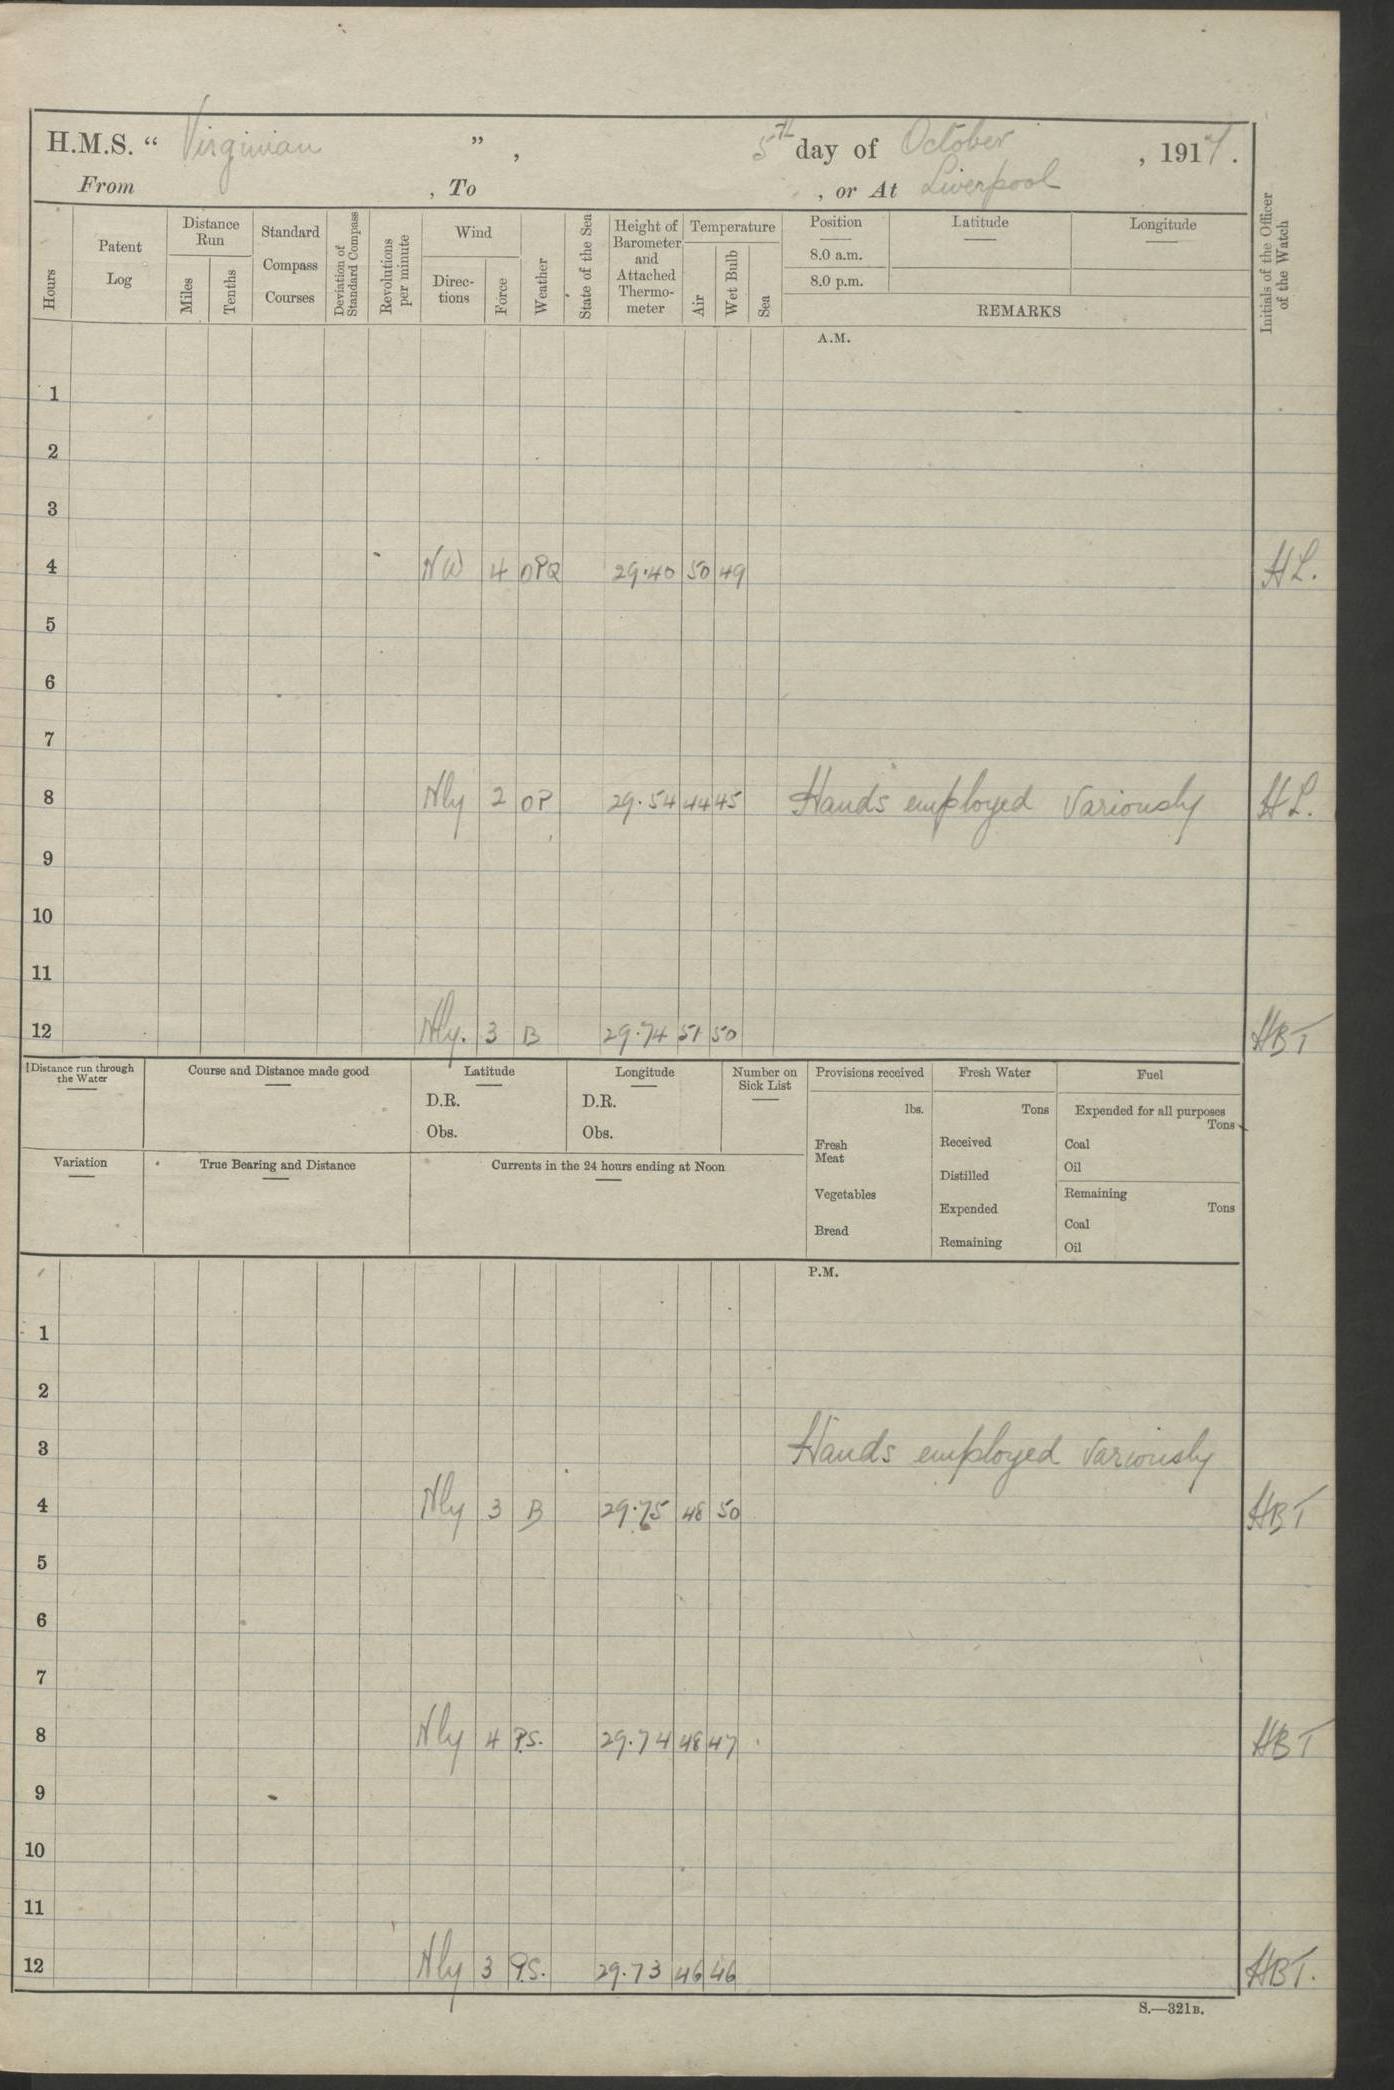 H.M.S. “ Virginian ” , 5th day of October , 1917 .
From , To , or At Liverpool
Hours
Patent Log
Distance Run
Miles
Tenths
Standard Compass Courses
Deviation of Standard Compass
Revolutions per minute
Wind
Direc-tions
Force
Weather
State of the Sea
Height of Barometer and Attached Thermo-meter
Temperature
Air
Wet Bulb
Sea
Position
8.0 a.m.
8.0 p.m.
Latitude
Longitude
REMARKS
Initials of the Officer of the Watch
A.M.
1
2
3
4 NW 4 OPQ 29.40 50 49 HL.
5
6
7
8 Nly 2 OP 29.54 44 45 Hands employed Variously HL.
9
10
11
12 Nly. 3 B 29.74 51 50 HBT
Distance run through the Water
Course and Distance made good
Latitude
D.R.
Obs.
Longitude
D.R.
Obs.
Number on Sick List
Provisions received
lbs.
Fresh Meat
Vegetables
Bread
Fresh Water
Tons
Received
Distilled
Expended
Remaining
Fuel
Expended for all purposes
Tons
Coal
Oil
Remaining
Tons
Coal
Oil
Variation
True Bearing and Distance
Currents in the 24 hours ending at Noon
P.M.
1
2
3 Hands employed variously
4 Nly 3 B 29.75 48 50 HBT
5
6
7
8 Nly 4 P.S. 29.74 48 47 HBT
9
10
11
12 Nly 3 P.S. 29.73 46 46 HBT.
S.—321B.